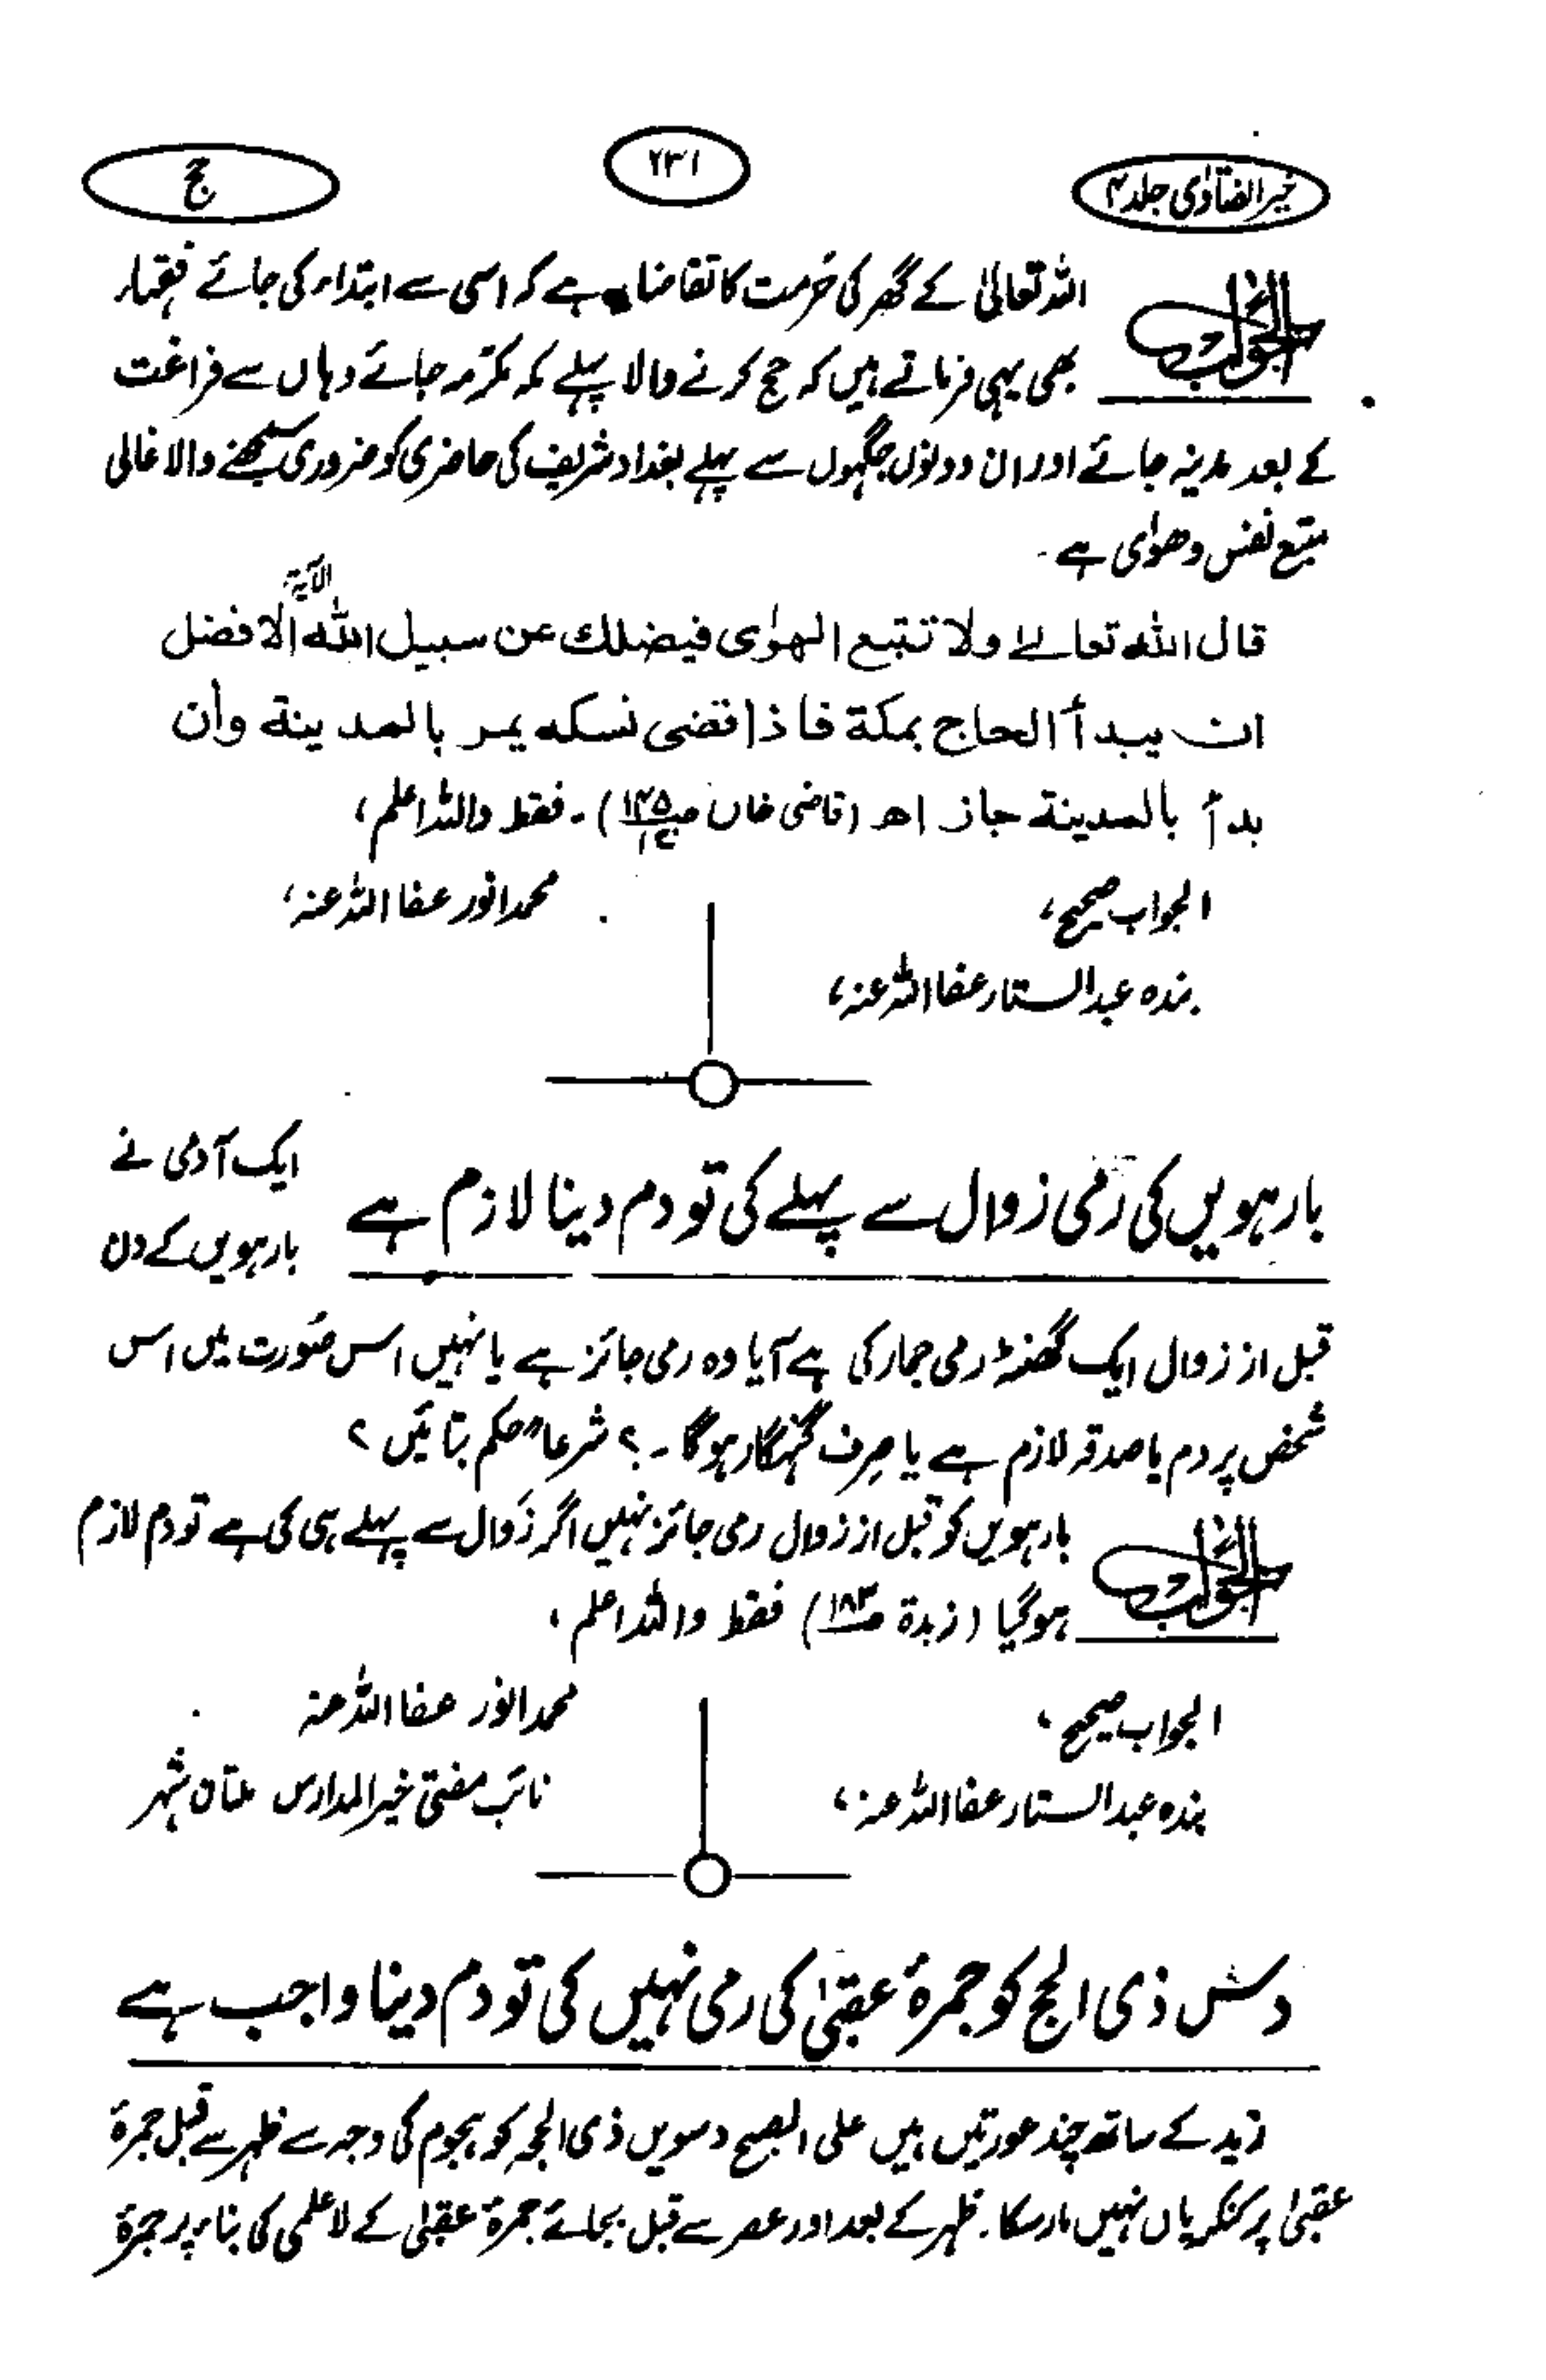 خیر الفتاوٰی جلد ۴
۲۳۱
حج
الجواب
اللہ تعالیٰ کے گھر کی حرمت کا تقاضا ہے کہ اسی سے ابتداء کی جائے فقہاء
بھی یہی فرماتے ہیں کہ حج کرنے والا پہلے مکہ مکرمہ جائے وہاں سے فراغت
کے بعد مدینہ جائے اور ان دونوں جگہوں سے پہلے بغداد شریف کی حاضری کو ضروری سمجھنے والا غالی
متبع نفس وھوٰی ہے۔
قال اللہ تعالےٰ ولا تتبع الہوٰی فیضلك عن سبیل اللہ الآیۃ الافضل
ان یبدأ الحاج بمکة فاذا قضی نسکه یمر بالمدینة وأن
بدأ بالمدینة جاز اھ (قاضی خاں ص۱۴۵) ۔ فقط واللہ اعلم،
محمد انور عفا اللہ عنہ،
الجواب صحیح،
بندہ عبدالستار عفا اللہ عنہ،
بارہویں کی رمی زوال سے پہلے کی تو دم دینا لازم ہے
ایک آدمی نے
بارہویں کے دن
قبل از زوال ایک گھنٹہ رمی جمار کی ہے آیا وہ رمی جائز ہے یا نہیں اس صورت میں اس
شخص پر دم یا صدقہ لازم ہے یا صرف گنہگار ہوگا ۔؟ شرعاً حکم بتائیں؟
الجواب
بارہویں کو قبل از زوال رمی جائز نہیں اگر زوال سے پہلے ہی کی ہے تو دم لازم
ہوگیا (زبدة ص۱۸۳) فقط واللہ اعلم،
محمد انور عفا اللہ عنہ
الجواب صحیح،
نائب مفتی خیر المدارس ملتان شہر
بندہ عبدالستار عفا اللہ عنہ،
دس ذی الحج کو جمرۂ عقبیٰ کی رمی نہیں کی تو دم دینا واجب ہے
زید کے ساتھ چند عورتیں ہیں علی الصبح دسویں ذی الحجہ کو ہجوم کی وجہ سے ظہر سے قبل جمرۂ
عقبیٰ پر کنکریاں نہیں مار سکا۔ ظہر کے بعد اور عصر سے قبل بجائے جمرۂ عقبیٰ کے لاعلمی کی بنا پر جمرۂ